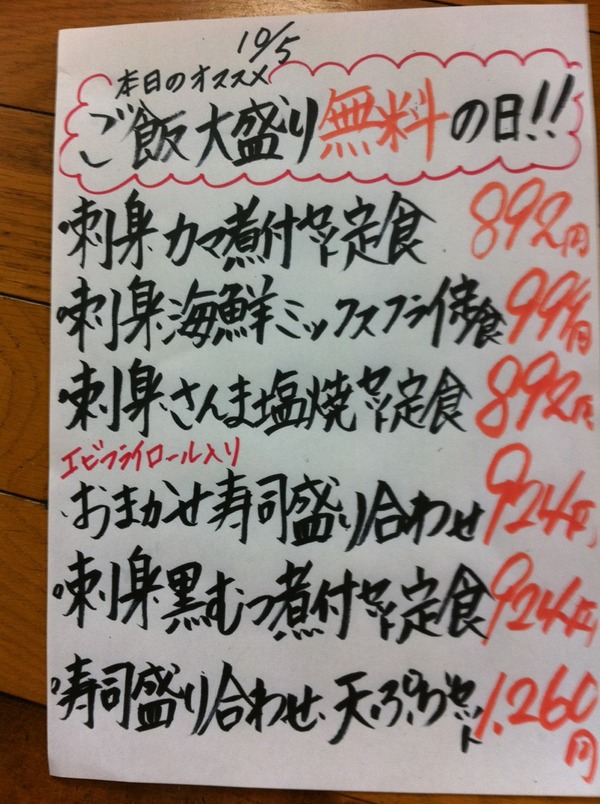 10/5
本日のオススメ
ご飯大盛り無料の日!!
刺身カマ煮付セット定食 892円
刺身海鮮ミックスフライ定食 997円
刺身さんま塩焼セット定食 892円
エビフライロール入り
おまかせ寿司盛り合わせ 924円
刺身黒むつ煮付セット定食 924円
寿司盛り合わせ、天ぷらセット 1,260円